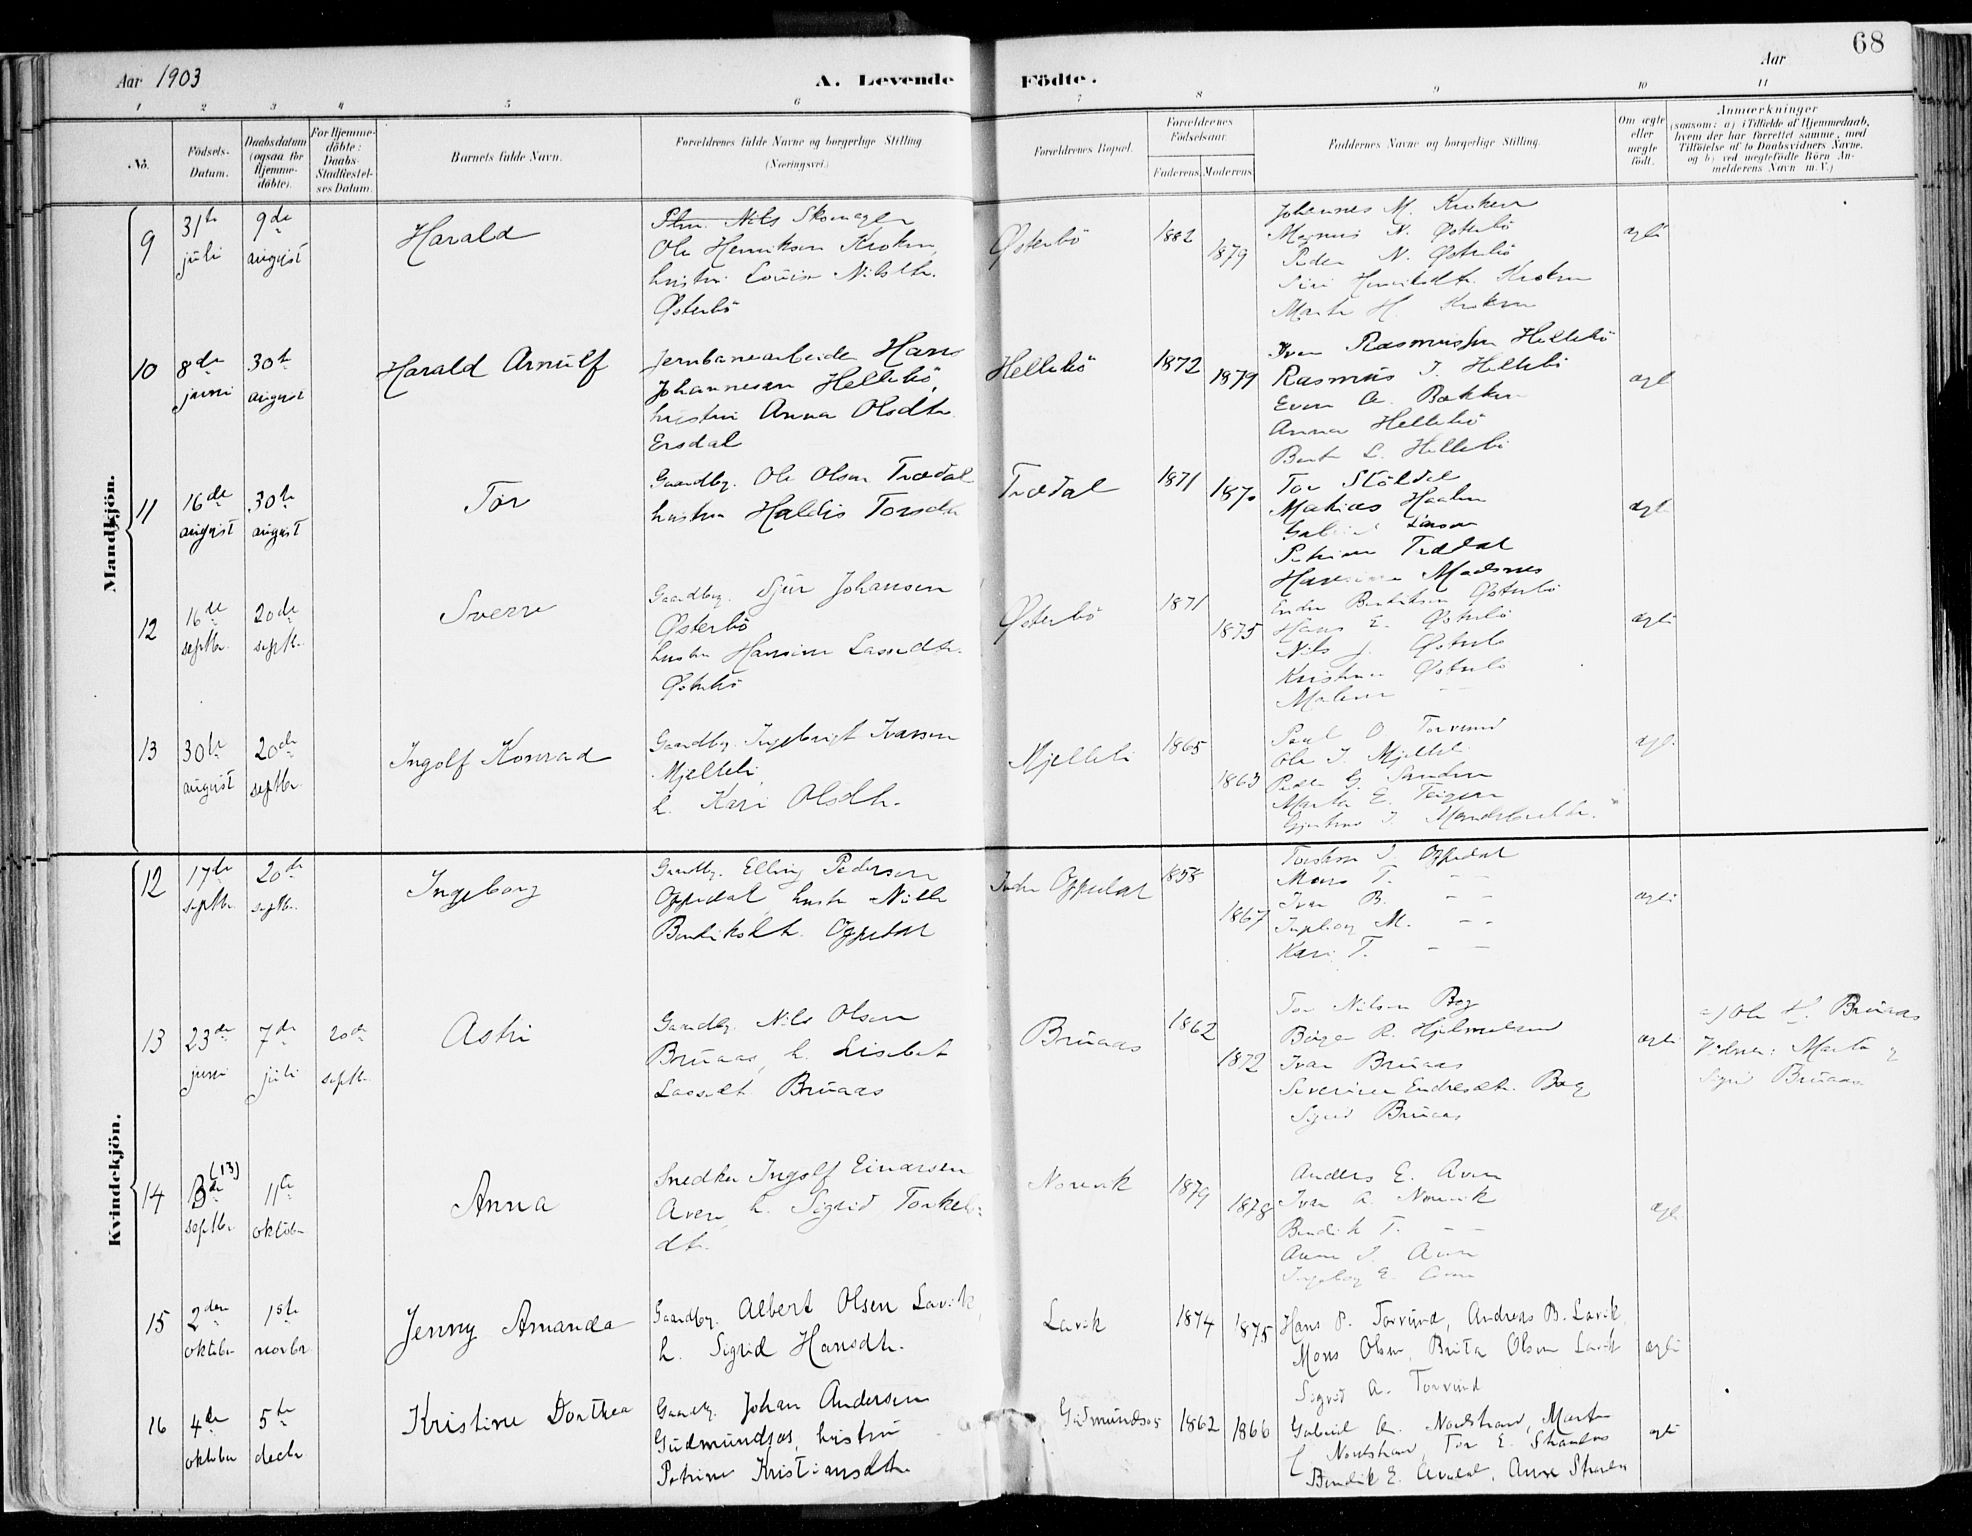 68
Aar 1903
A. Levende Födte.
Aar
1 2 3 4 5 6 7 8 9 10 11
No.
Födsels-Datum.
Daabsdatum (ogsaa for Hjemmedöbte).
For Hjemmedöbte: Daabs-Stadfestelses Datum.
Barnets fulde Navn.
Forældrenes fulde Navne og borgerlige Stilling (Næringsvei.)
Forældrenes Bopæl.
Forældrenes Födselsaar.
Faderens. Moderens.
Faddernes Navne og borgerlige Stilling.
Om ægte eller uægte födt.
Anmærkninger
(saasom: a) i Tilfælde af Hjemmedaab,
hvem der har forrettet samme, med
Tilföielse af to Daabsvidners Navne,
og b) ved uægtefödte Börn Anmelderens Navn m.V.)
Mandkjön.
9
31te juli
9de august
Harald
Nils Skomager
Ole Henriksen Kroken,
hustru Louise Nilsdtr.
Østerbö
Østerbö
1882
1879
Johannes M. Kroken
Magnus N. Østerbö
Peder N. Østerbö
Siri Henriksdtr. Kroken
Marta H. Kroken
ægte
10
8de juni
30te august
Harald Arnulf
Jernbanearbeider Hans
Johannesen Hellebö,
hustru Anna Olsdtr.
Ersdal
Hellebö
1872
1879
Iver Rasmussen Hellebö
Rasmus J. Hellebö
Even A. Bakken
Anna Hellebö
Berta L. Hellebö
ægte
11
16de august
30te august
Tor
Gaardbr. Ole Olsen Trædal
hustru Haldis Torsdtr
Trædal
1871
1870
Tor Stöldal
Matias Haaland
Larsen
Petrine Trædal
Madsnes
ægte
12
16de septbr.
20de septbr.
Sverre
Gaardbr. Sjur Johansen
Østerbö
hustru Hansine Lassedtr.
Østerbö
Østerbö
1871
1875
Endre Bendiksen Østerbö
Hans E. Østerbö
Nils J. Østerbö
Kristense Østerbö
Malene — —
ægte
13
30te august
20de septbr.
Ingolf Konrad
Gaardbr. Ingebrigt Ivarsen
Mjelleli,
h. Kari Olsdtr.
Mjelleli
1865
1863
Paul O. Torvund
Ole I. Mjelleli
Peder G. Sanden
Marta E. Teigen
ægte
Kvindekjön.
12
17de septbr.
20de septbr.
Ingeborg
Gaardbr. Elling Pedersen
Oppedal hustru Nille
Bendiksdtr. Oppedal
Indre Oppedal
1858
1867
Torstein I. Oppedal
Mons T. — —
Ivar B. — —
Ingeborg M. — —
Kari T. — —
ægte
13
23de juni
7de juli
20de septbr.
Astri
Gaardbr. Nils Olsen
Bruaas, h. Lisebet
Lassedt. Bruaas
Bruaas
1862
1872
Tor Nilsen Bog
Börge R. Hjelmeland
Ivar Bruaas
Severine Endresdtr. Bog
Sigrid Bruaas
ægte
a) Ole H. Bruaas
Vidner: Marta og
Sigrid Bruaas
14
(13)
13de septbr.
11te oktober
Anna
Snedker Ingolf Einarsen
Aven, h. Sigrid Torkels-
dtr.
Norevik
1879
1878
Anders E. Aven
Ivar A. Norevik
Bendik T. — —
Anna I. Aven
Ingeborg E. Aven
ægte
15
2den oktober
1ste novbr.
Jenny Amanda
Gaardbr. Albert Olsen Lavik,
h. Sigrid Hansdtr.
Lavik
1874
1875
Hans P. Torvund, Andreas B. Lavik,
Mons Olsen, Brita Olsen Lavik
Sigrid A. Torvund
ægte
16
4de oktober
5te decbr
Kristine Dorthea
Gaardbr. Johan Andersen
Gudmundsos, hustru
Petrine Kristiansdtr.
Gudmundsos
1862
1866
Gabriel A. Nordstrand, Marta
Nordstrand, Tor E. Strandos
Bendik E. Anna
ægte